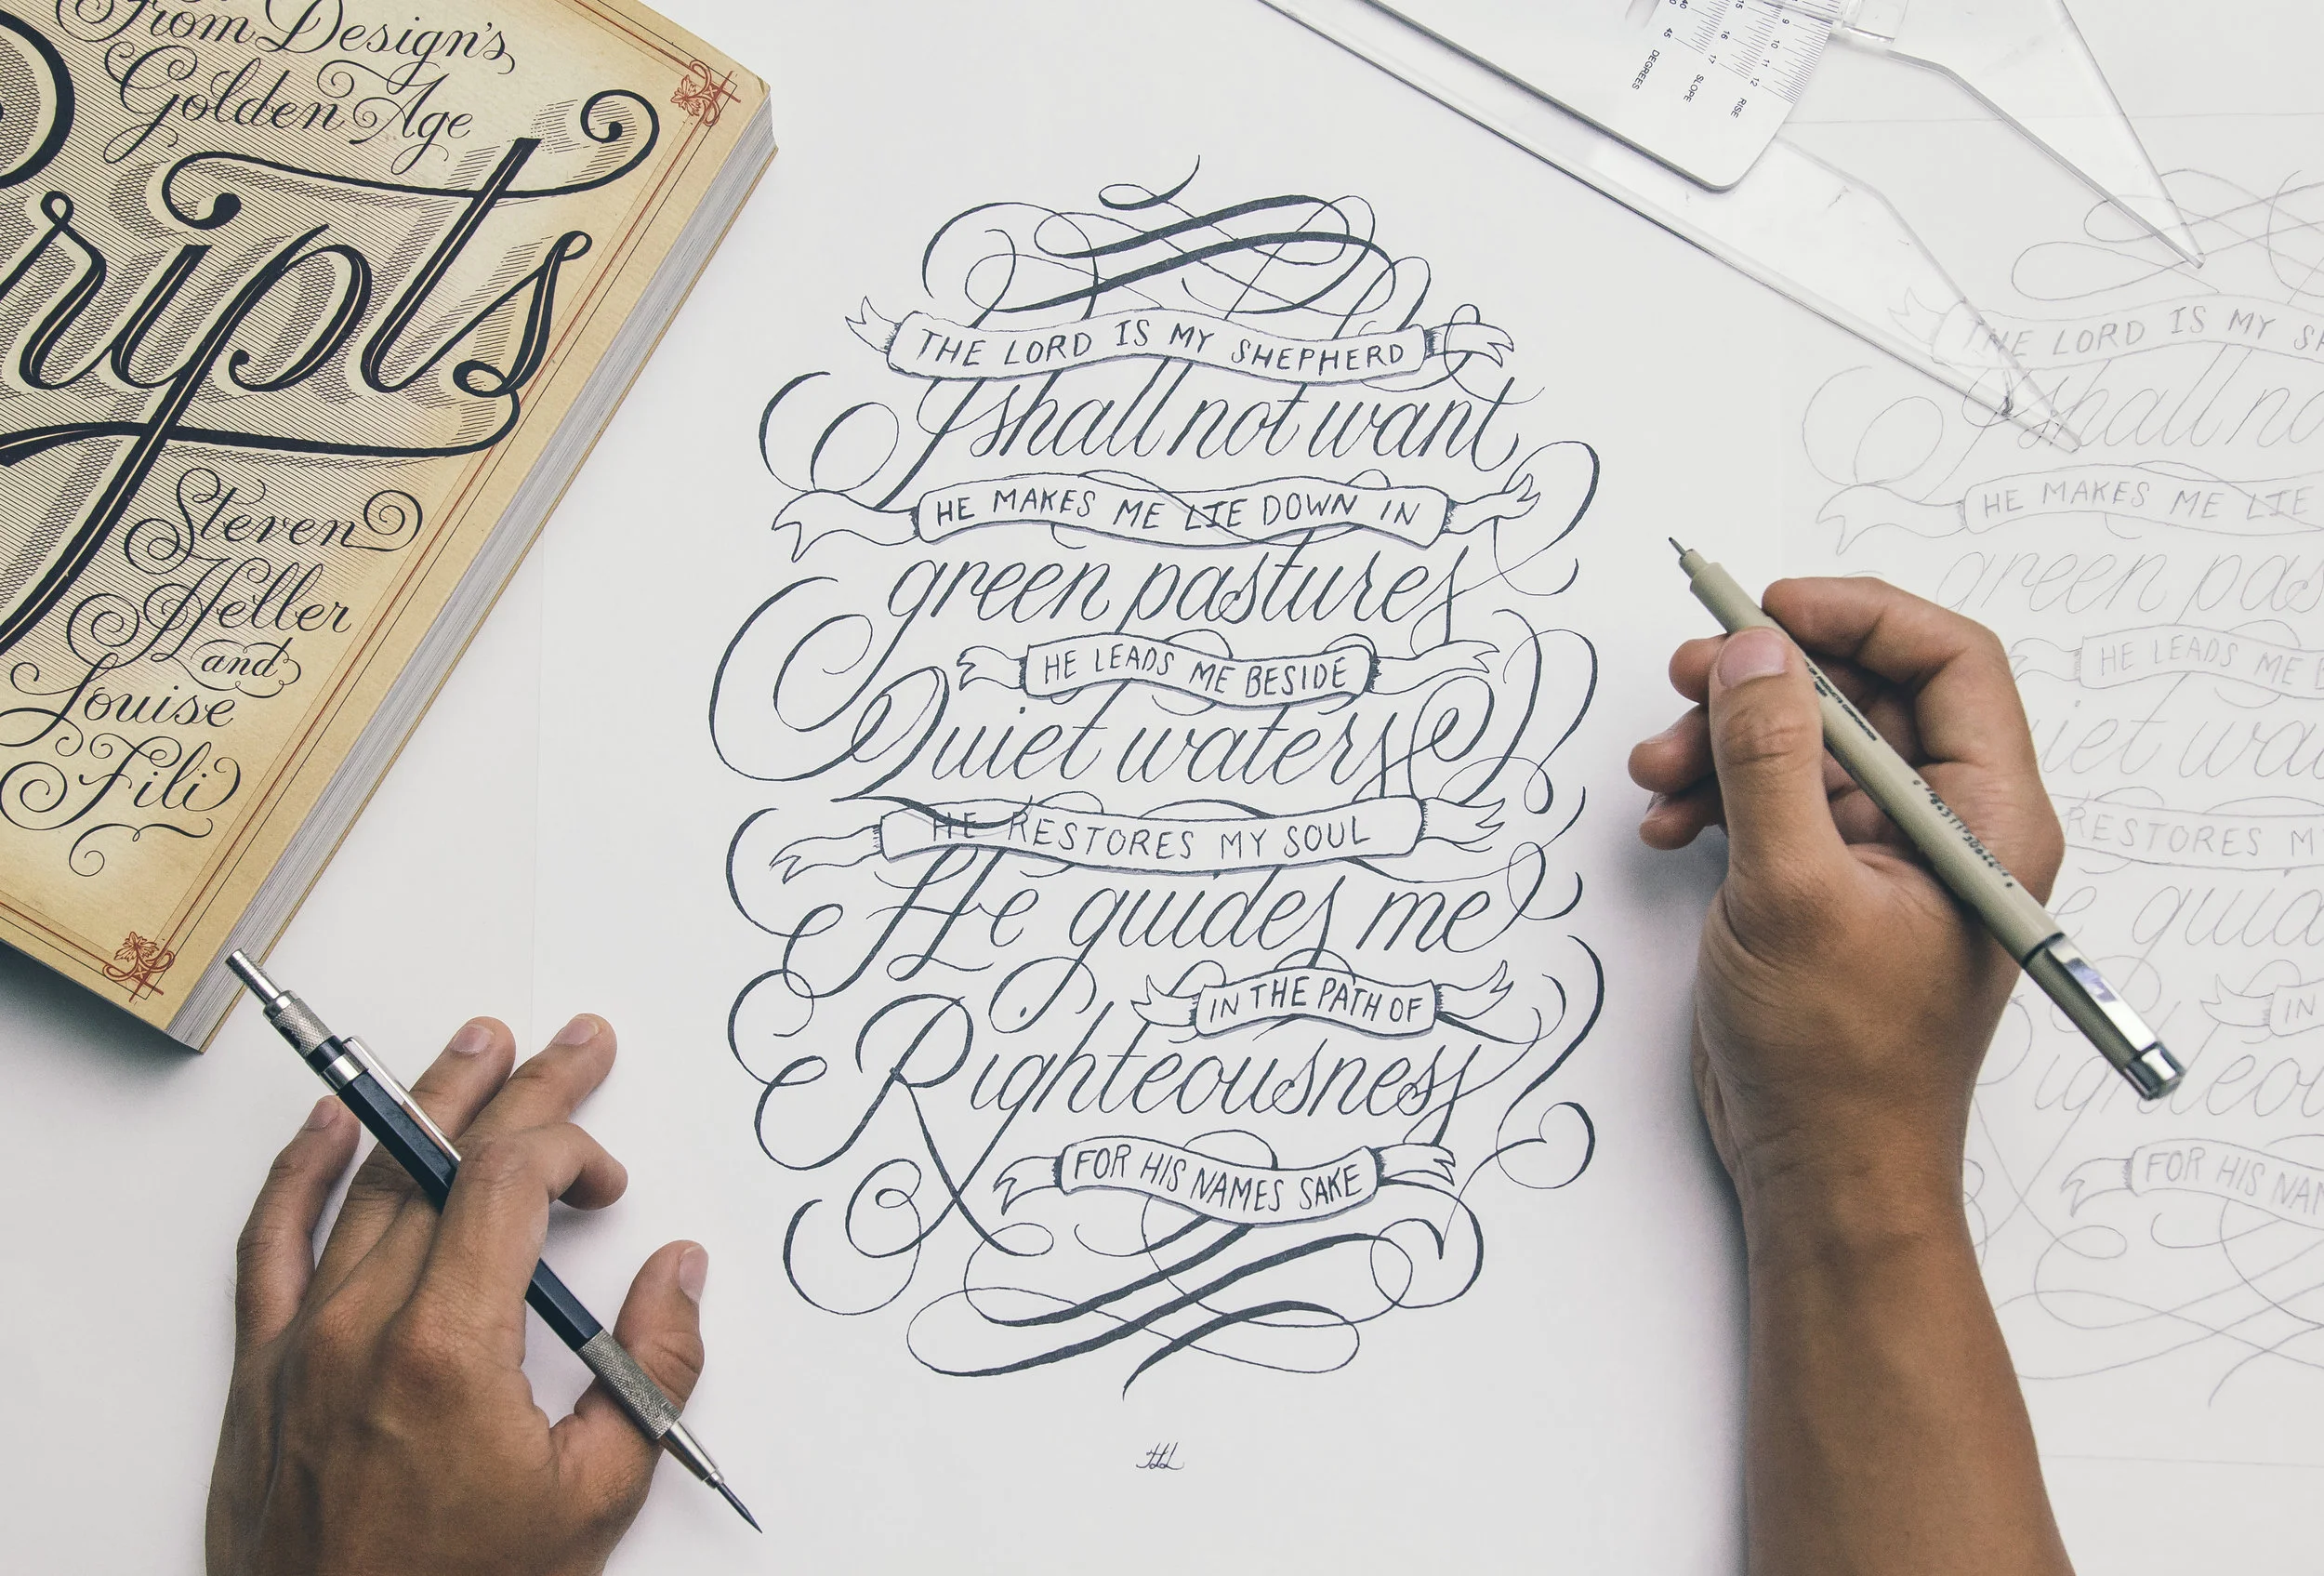 From Design's
Golden Age
ripts
Steven
Heller
and
Louise
Fili
DEGREES
SLOPE
RISE
THE LORD IS MY SHEPHERD
I shall not want
HE MAKES ME LIE DOWN IN
green pastures
HE LEADS ME BESIDE
Quiet waters
HE RESTORES MY SOUL
He guides me
IN THE PATH OF
Righteousness
FOR HIS NAMES SAKE
THE LORD IS MY
shall no
HE MAKES ME LIE
green pas
HE LEADS ME
uiet wa
RESTORES M
e guid
IN
ighteou
FOR HIS NA